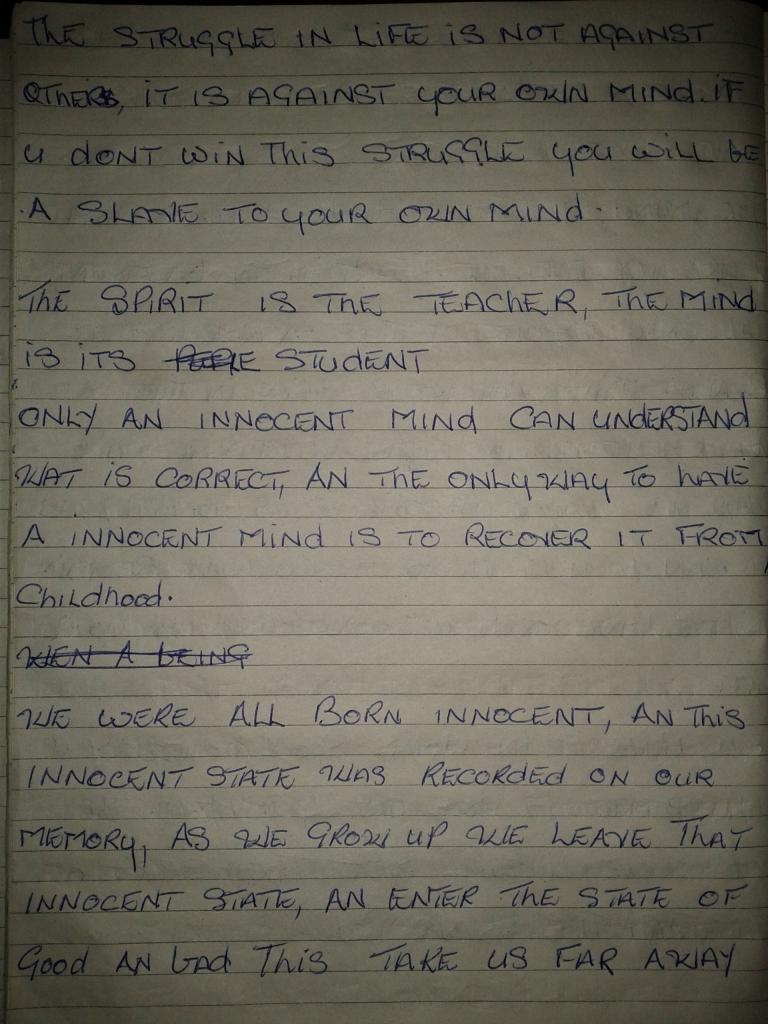 THE STRUGGLE IN LIFE IS NOT AGAINST
OTHERS, IT IS AGAINST YOUR OWN MIND. IF
U DONT WIN THIS STRUGGLE YOU WILL BE
A SLAVE TO YOUR OWN MIND.
THE SPIRIT IS THE TEACHER, THE MIND
IS ITS STUDENT
ONLY AN INNOCENT MIND CAN UNDERSTAND
WAT IS CORRECT, AN THE ONLY WAY TO HAVE
A INNOCENT MIND IS TO RECOVER IT FROM
Childhood.
WEN A BEING
WE WERE ALL BORN INNOCENT, AN THIS
INNOCENT STATE WAS RECORDED ON OUR
MEMORY, AS WE GROW UP WE LEAVE THAT
INNOCENT STATE, AN ENTER THE STATE OF
Good AN bad THIS TAKE US FAR AWAY